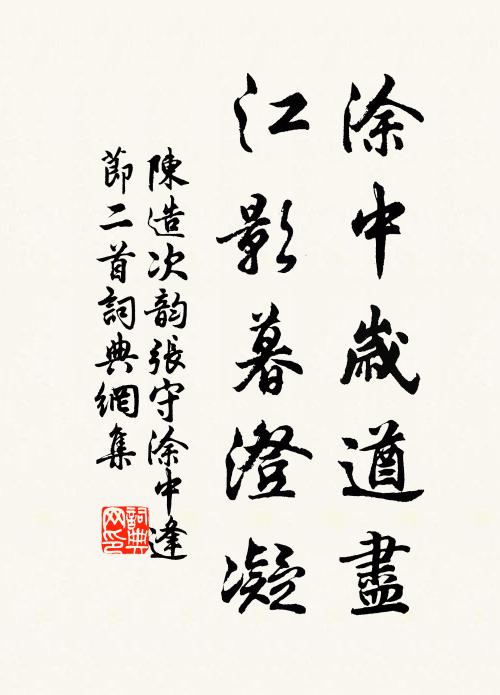 涂中歲遒盡
江影暮澄凝
陳造次韵張守涂中逢
節二首詞典網集
詞典
网印